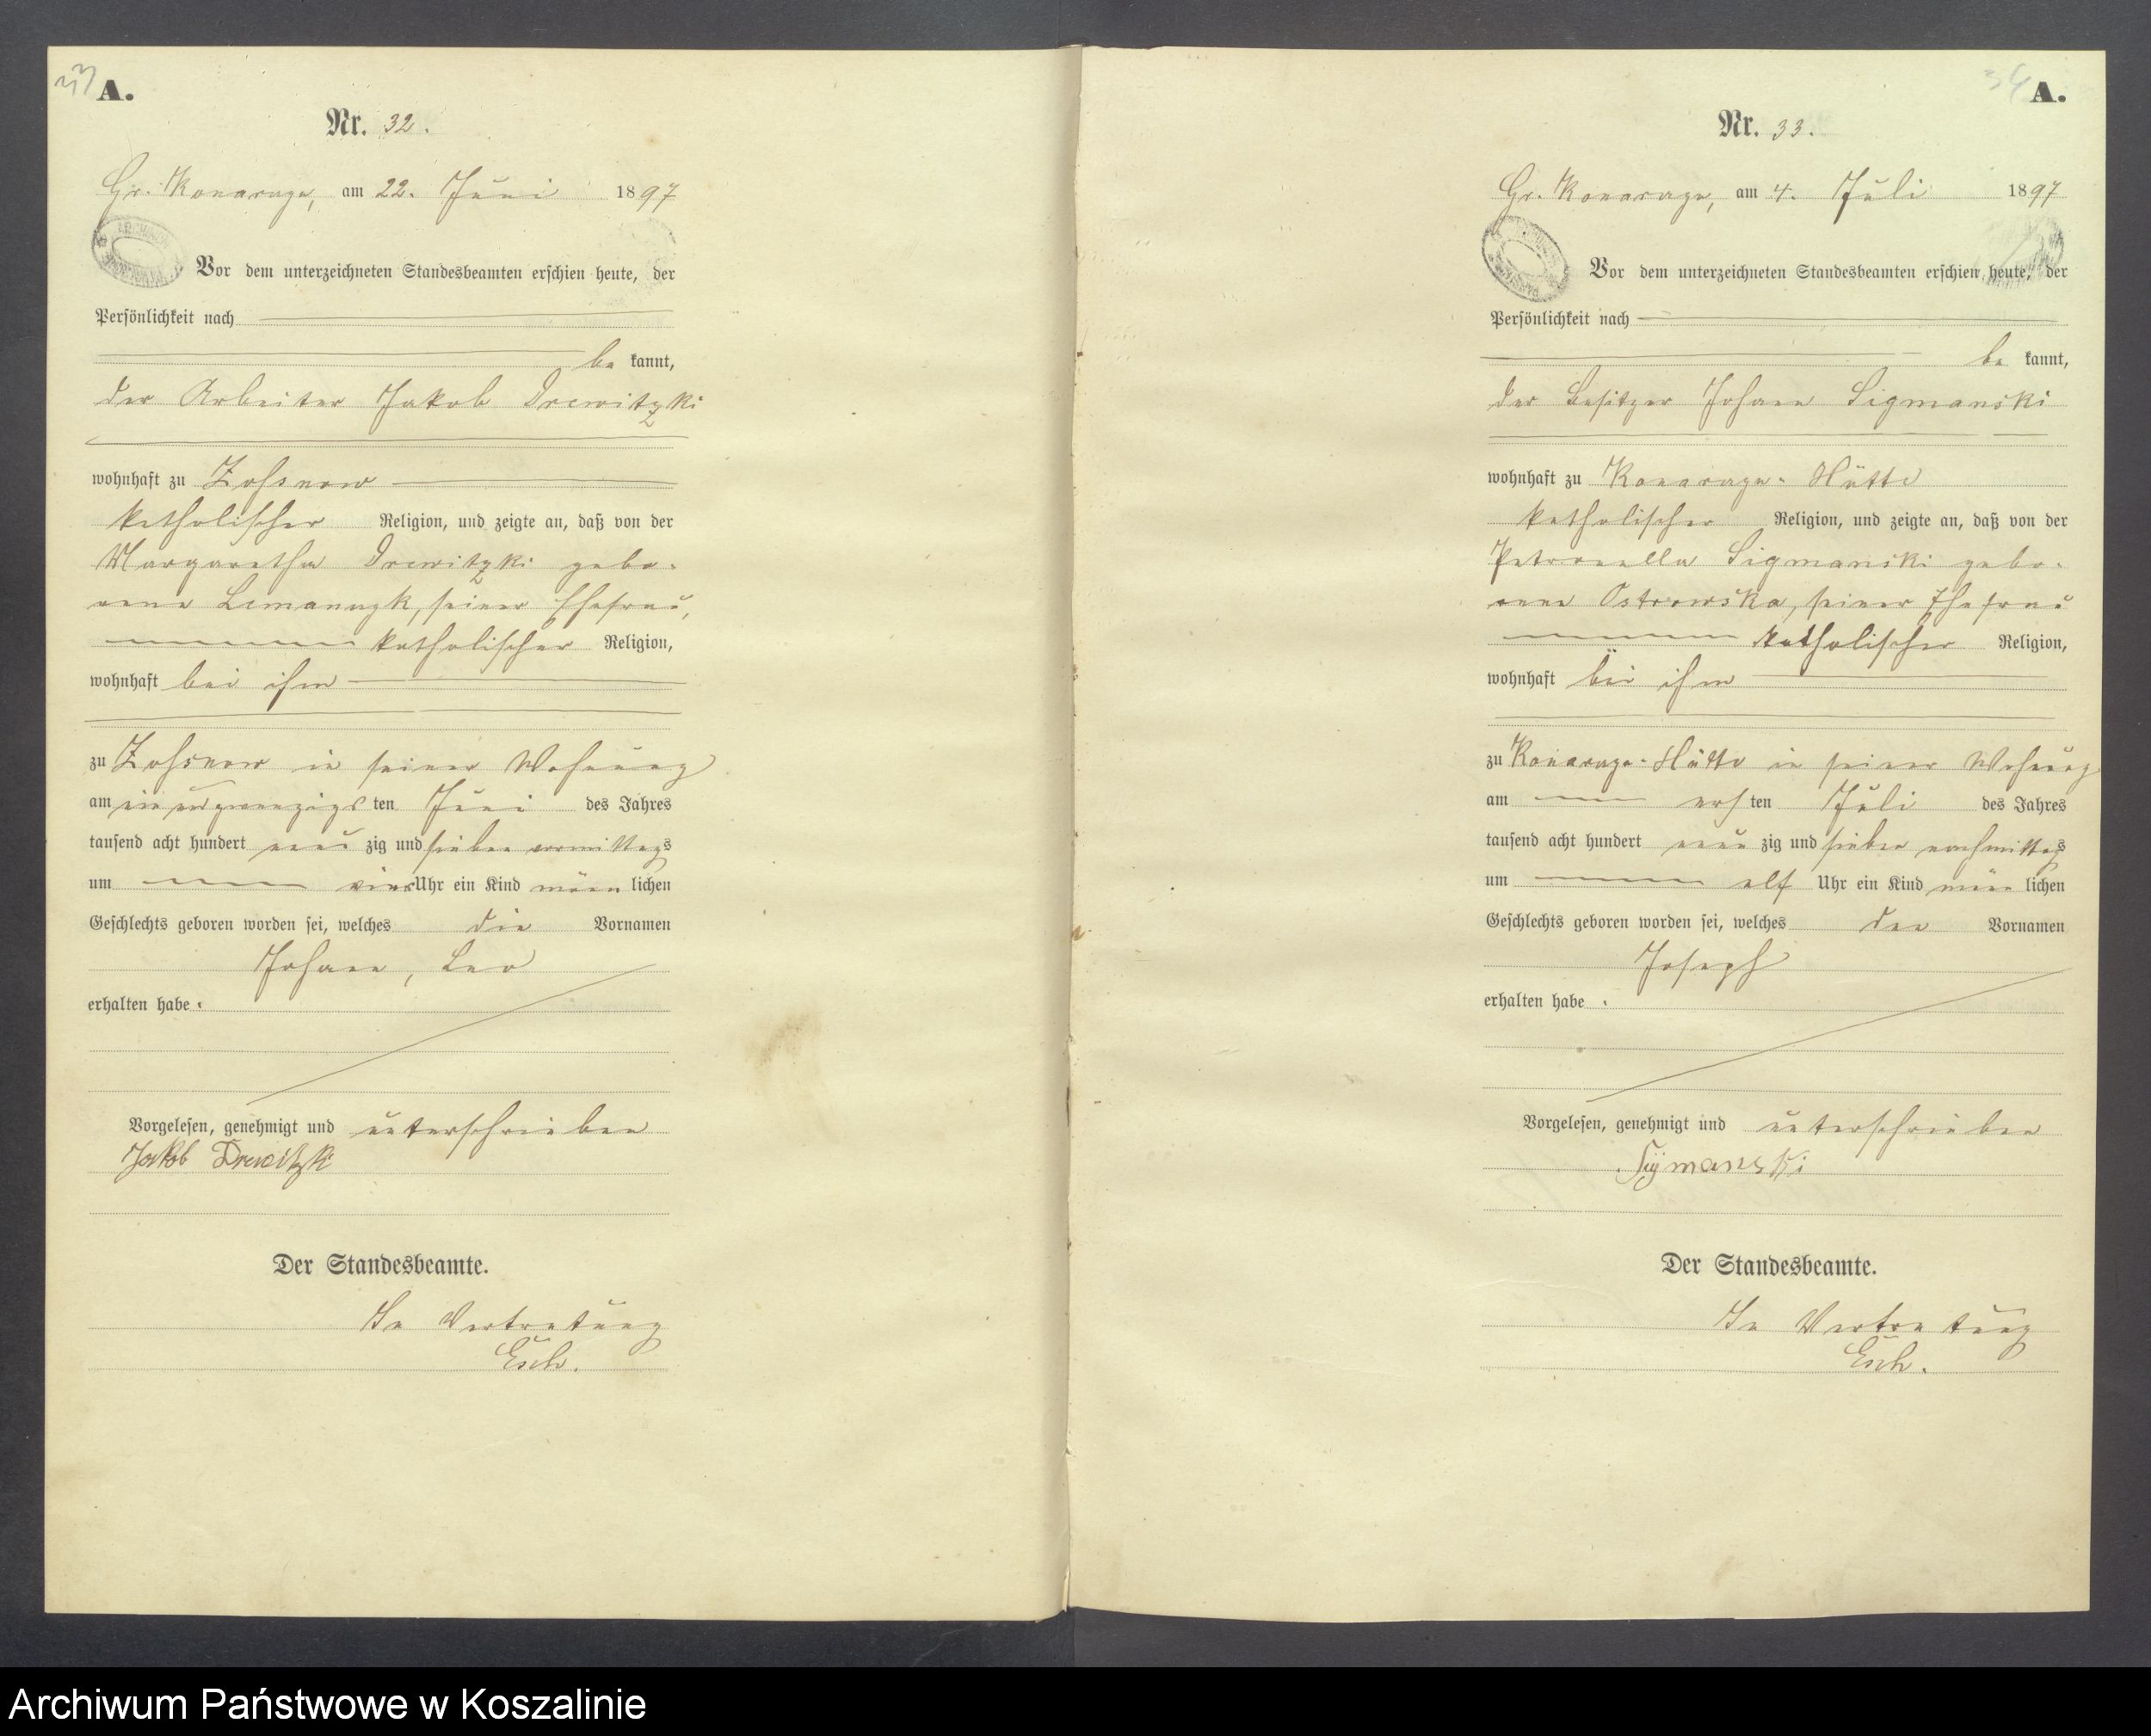 33
A.
Nr. 32.
Gr. Konarczyn, am 22. Juni 1897
Vor dem unterzeichneten Standesbeamten erschien heute, der
Persönlichkeit nach
be kannt,
der Arbeiter Jakob Drewitzki
wohnhaft zu
katholischer Religion, und zeigte an, daß von der
Margaretha Drewitzki gebo-
rene Lemanczyk, seiner Ehefrau,
katholischer Religion,
wohnhaft bei ihm
zu in seiner Wohnung
am ein und zwanzigs ten Juni des Jahres
tausend acht hundert neun zig und sieben vormittags
um vier Uhr ein Kind männ lichen
Geschlechts geboren worden sei, welches die Vornamen
Johann, Leo
erhalten habe.
Vorgelesen, genehmigt und unterschrieben
Jakob Drewitzki
Der Standesbeamte.
In Vertretung
Esch.
34
A.
Nr. 33.
Gr. Konarczyn, am 4. Juli 1897
Vor dem unterzeichneten Standesbeamten erschien heute, der
Persönlichkeit nach
be kannt,
der Besitzer Johann Sigmanski
wohnhaft zu Hütte
katholischer Religion, und zeigte an, daß von der
Petronella Sigmanski gebo-
rene Ostrowska, seiner Ehefrau
katholischer Religion,
wohnhaft bei ihm
zu Hütte in seiner Wohnung
am ers ten Juli des Jahres
tausend acht hundert neun zig und sieben nachmittags
um elf Uhr ein Kind männ lichen
Geschlechts geboren worden sei, welches den Vornamen
Joseph
erhalten habe.
Vorgelesen, genehmigt und unterschrieben
Sÿmanski
Der Standesbeamte.
In Vertretung
Esch.
Archiwum Państwowe w Koszalinie